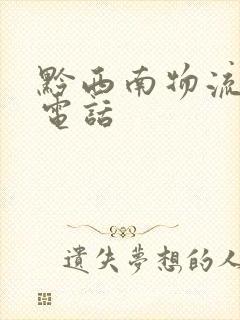 黔西南物流
電話
遺失夢想的人